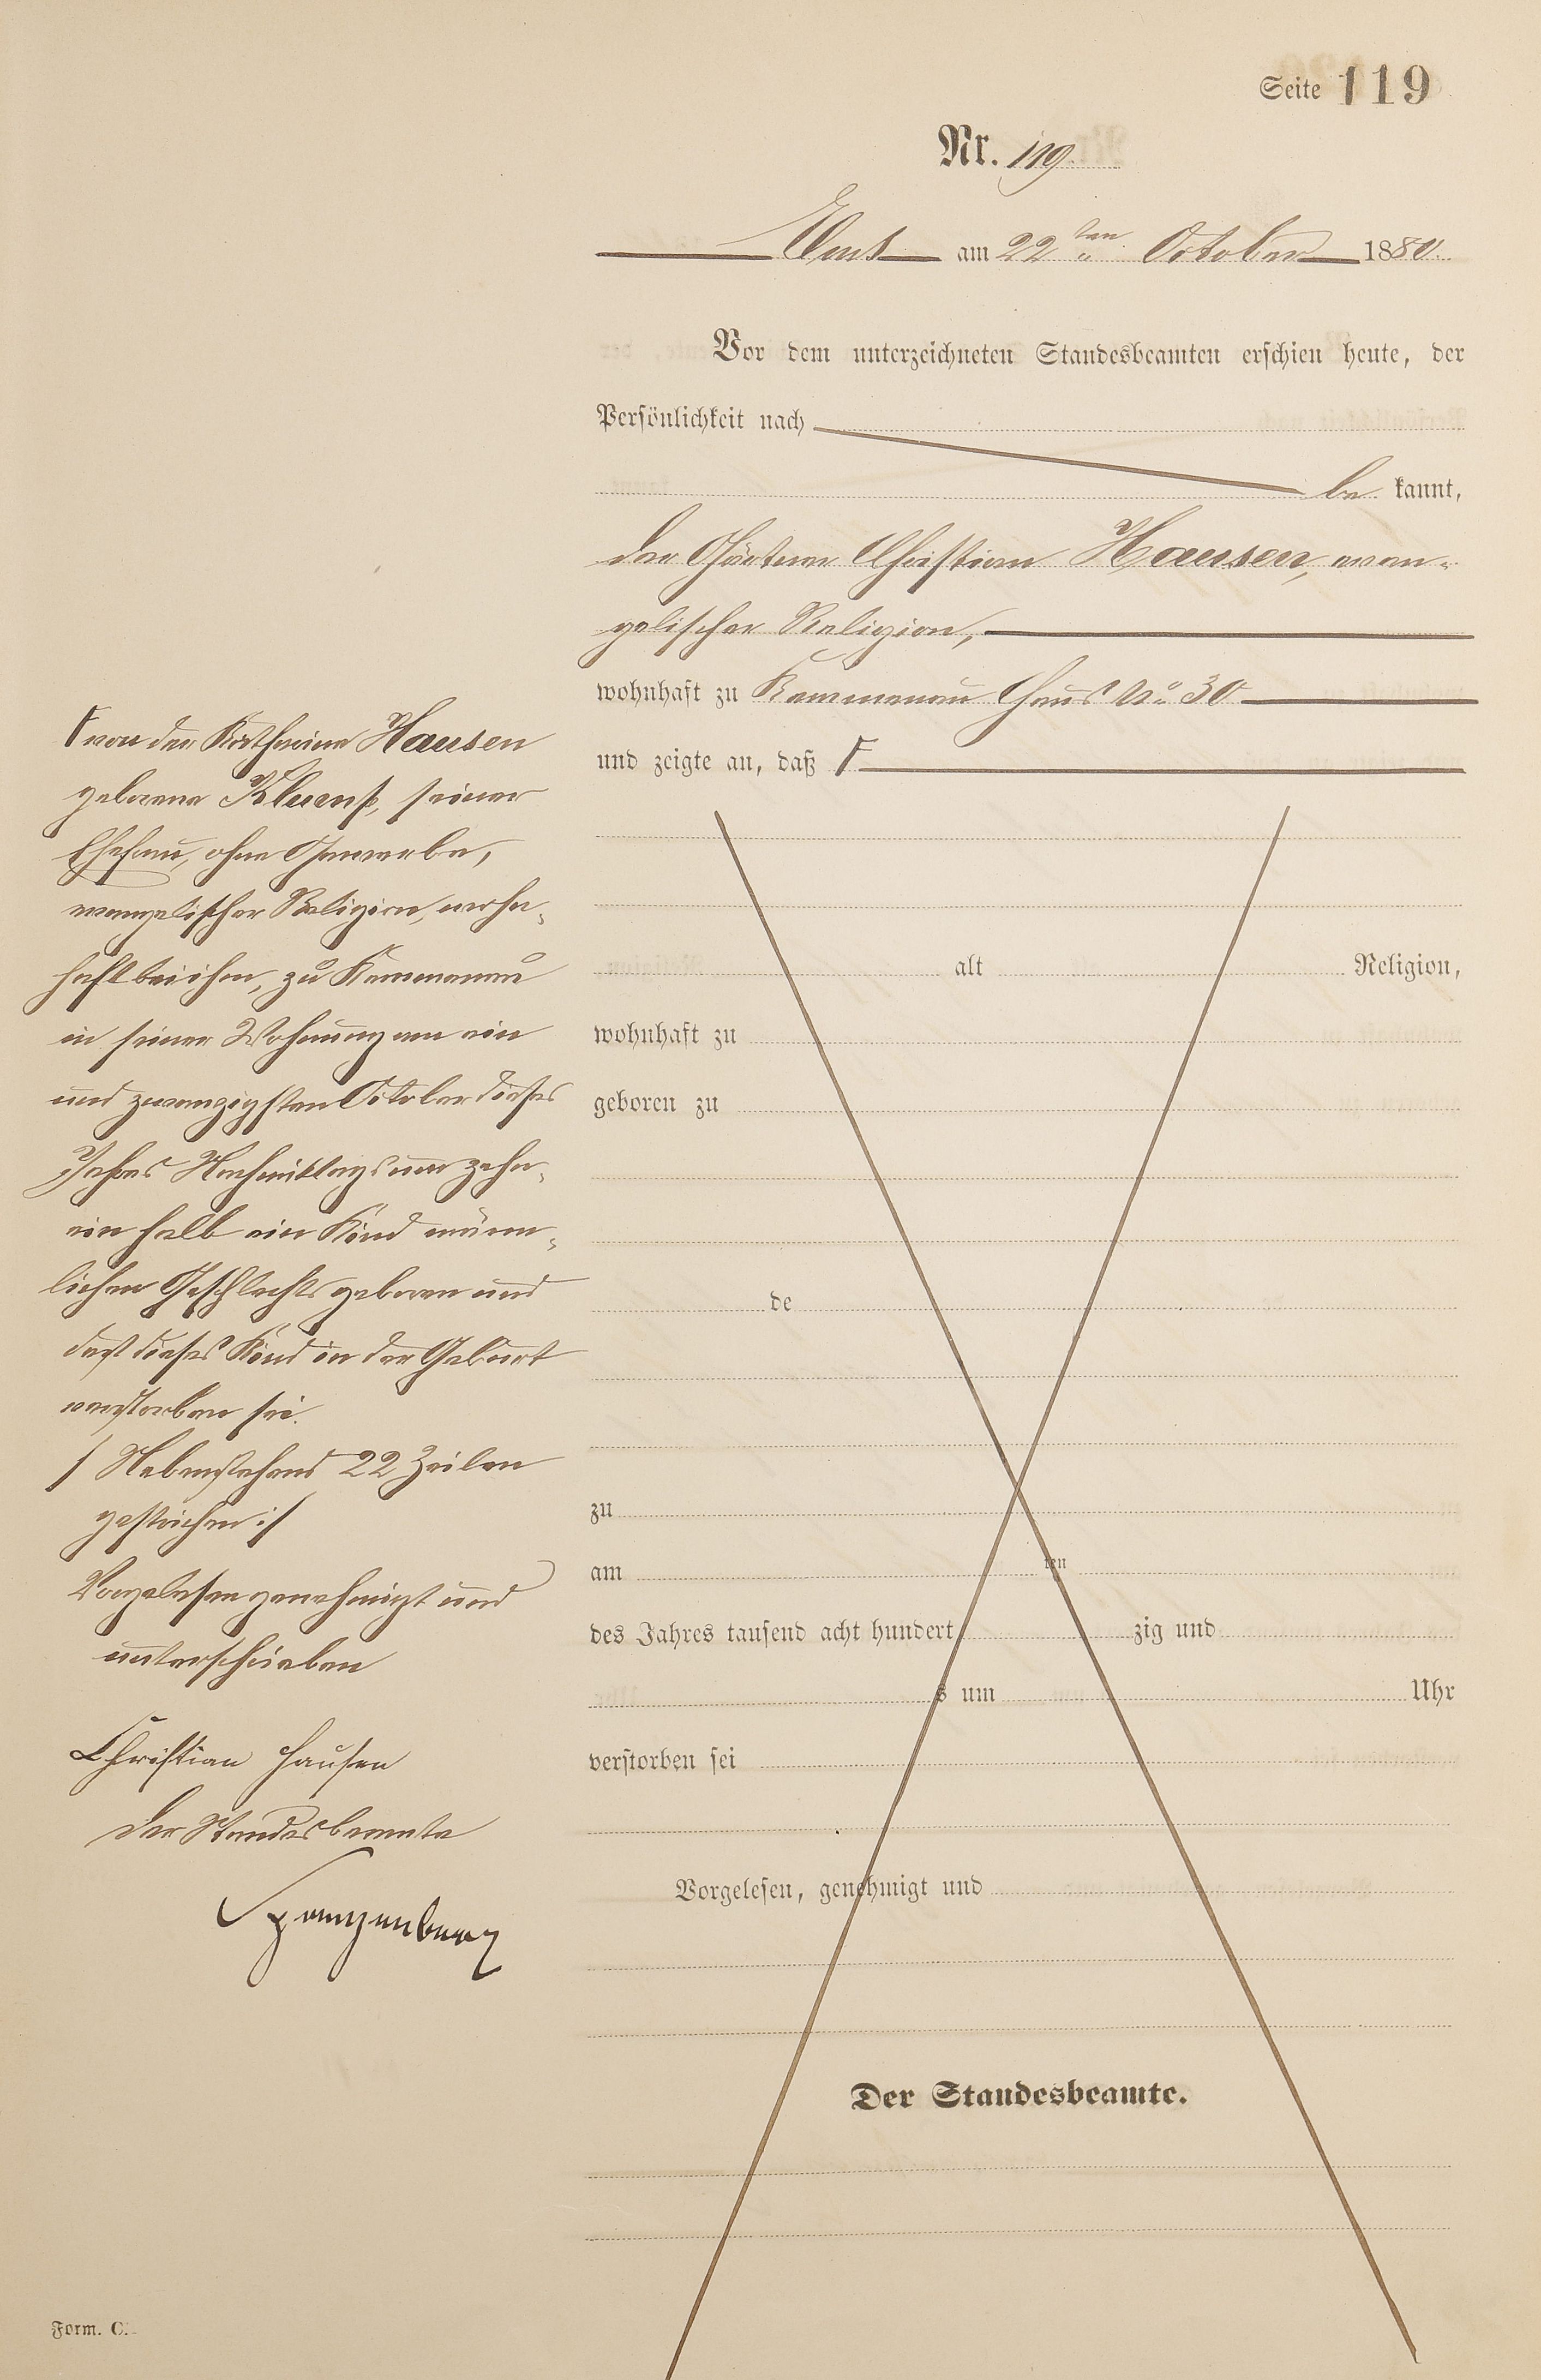 Seite 119
Nr. 119
Ems am 22ten October 1880.
Vor dem unterzeichneten Standesbeamten erschien heute, der
Persönlichkeit nach
be kannt,
der Gärtner Christian Hausen, evan-
gelischer Religion,
wohnhaft zu Kemmenau Haus No. 30
und zeigte an, daß Γ
Γ von der Katharina Hausen
geborene Klump, seiner
Ehefrau, ohne Gewerbe,
evangelischer Religion, wohn-
haft bei ihm, zu Kemmenau
in seiner Wohnung am ein
und zwanzigsten October dieses
Jahres Nachmittags um zehn
ein halb ein Kind männ-
lichen Geschlechts geboren und
daß dieses Kind in der Geburt
verstorben sei.
/ Nebenstehend 22 Zeilen
gestrichen :/
Vorgelesen genehmigt und
unterschrieben
Christian Hausen
Der Standesbeamte
Spangenberg
alt Religion,
wohnhaft zu
geboren zu
de
zu
am ten
des Jahres tausend acht hundert zig und
s um Uhr
verstorben sei
Vorgelesen, genehmigt und
Der Standesbeamte.
Form. C.